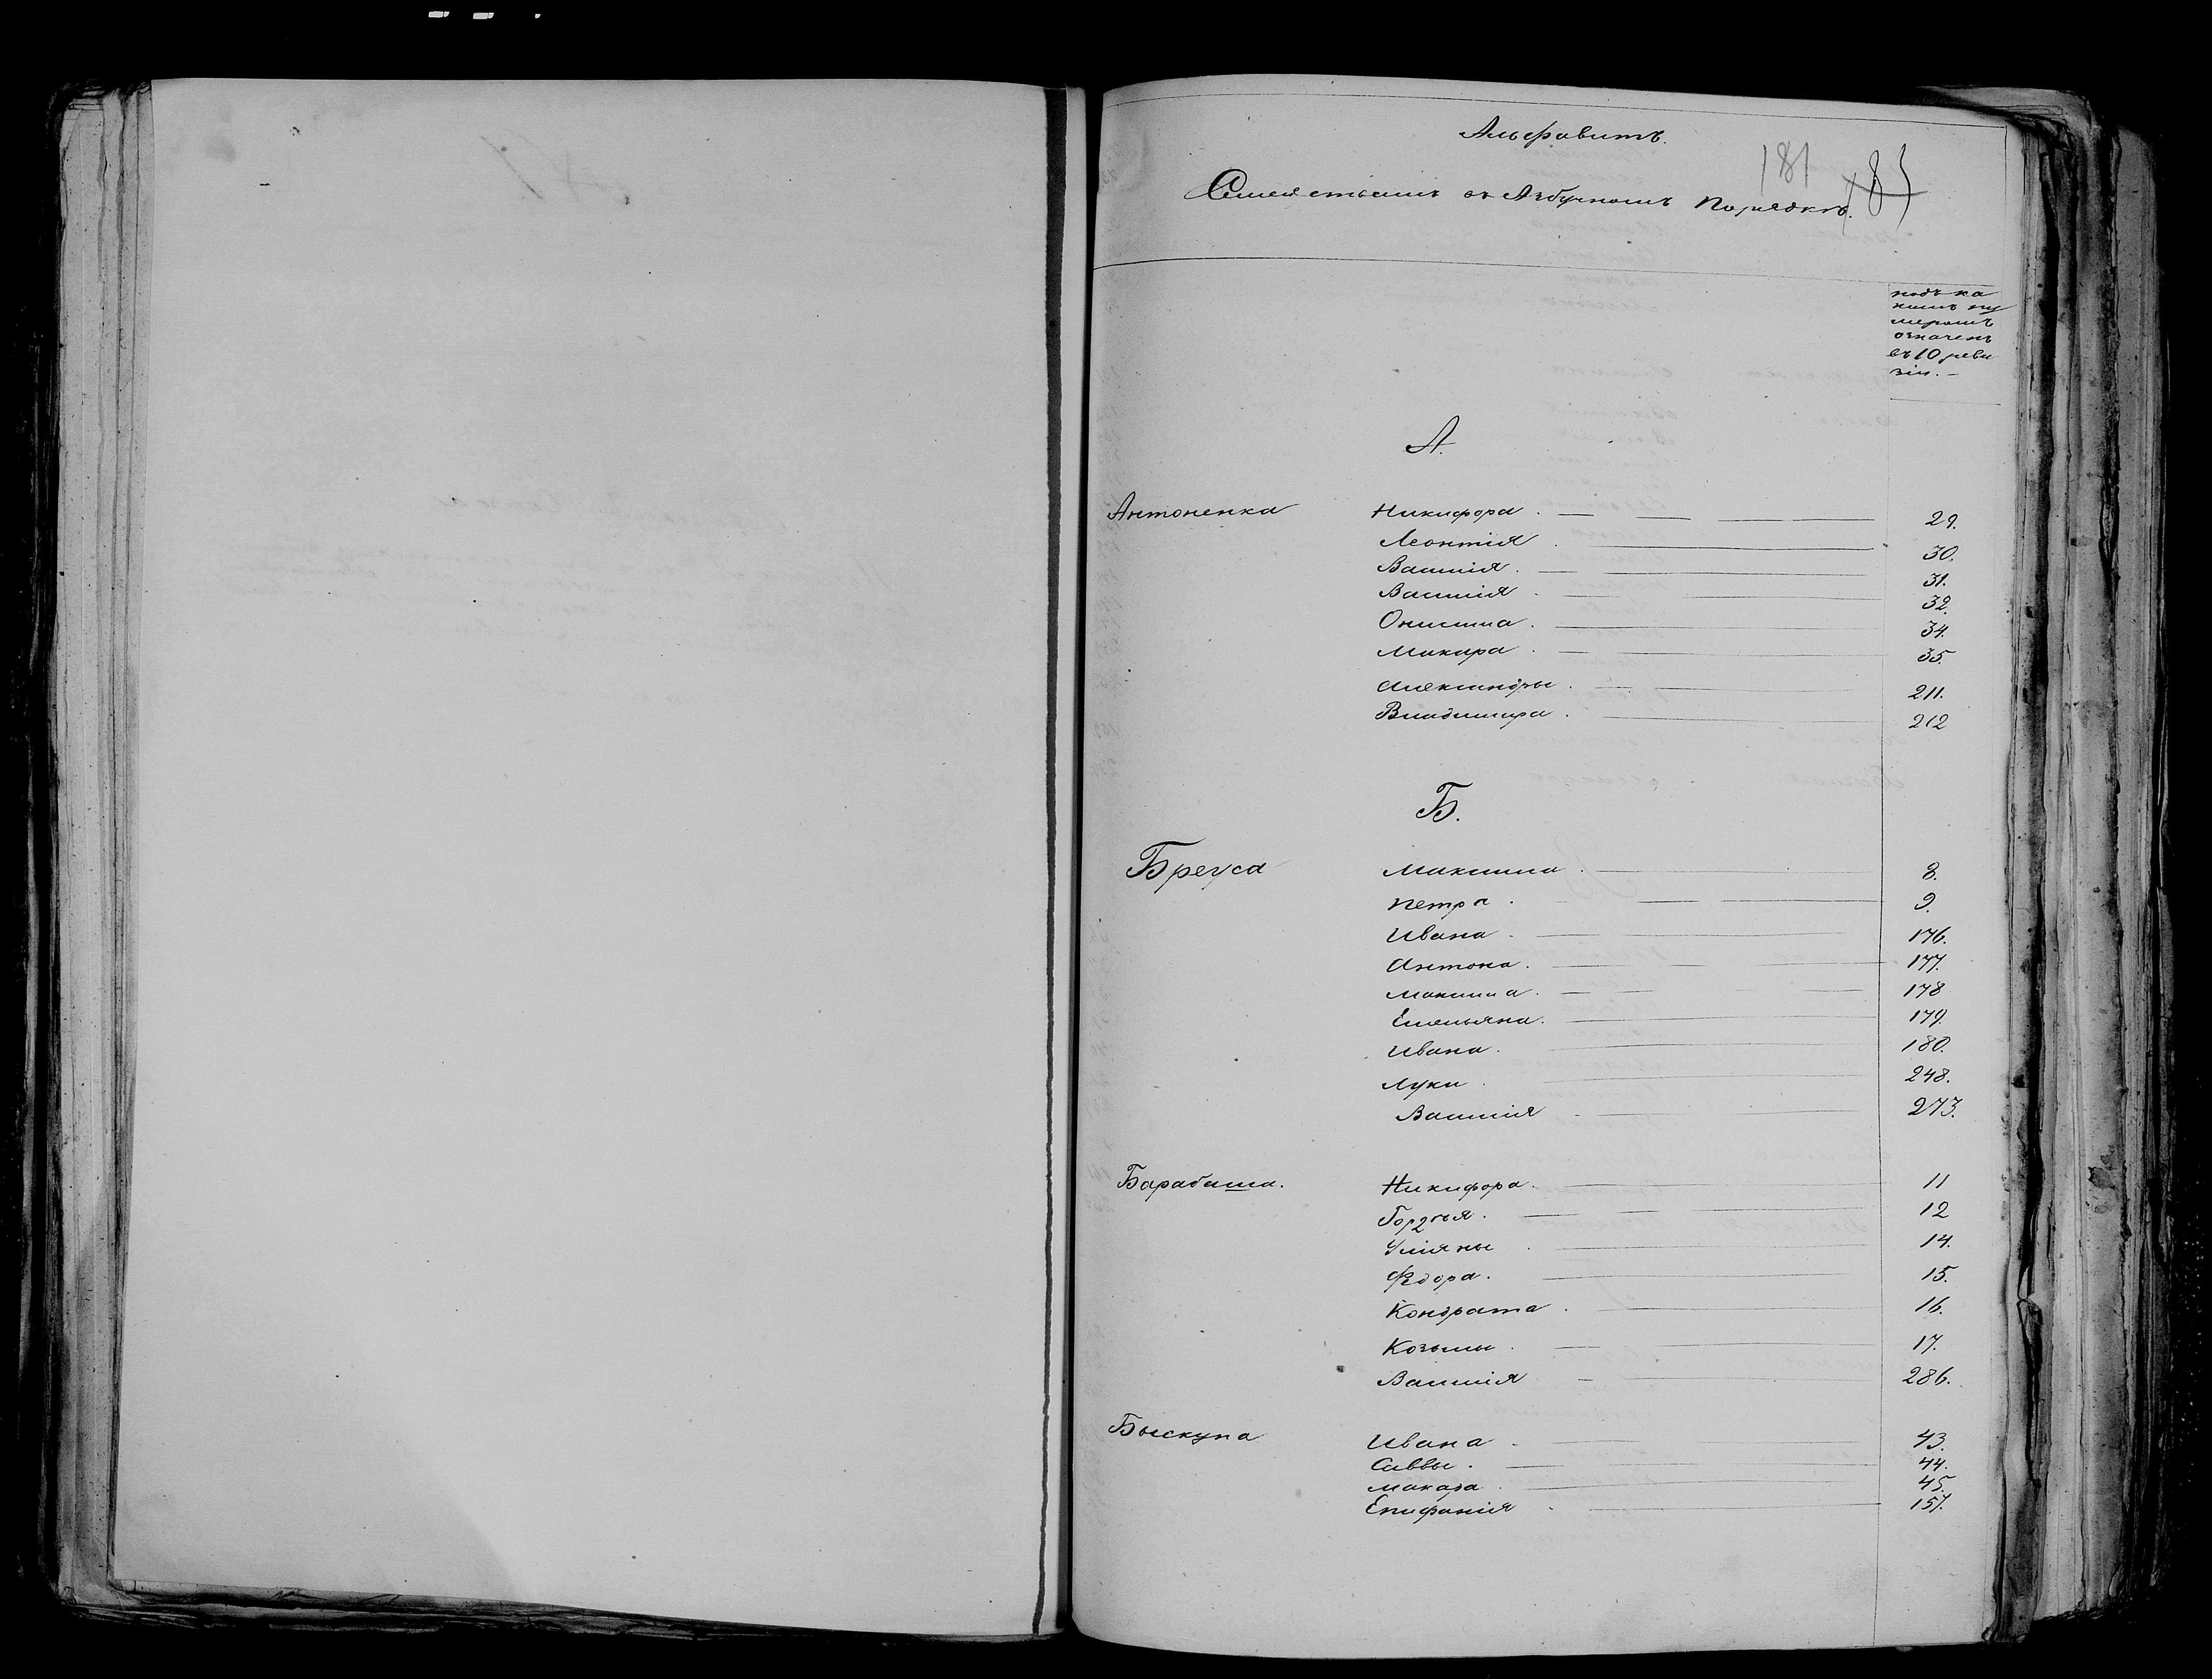 Альфавитъ.
181
Семействамъ въ Азбучномъ Порядкѣ.
подъ ка
кимъ ну
меромъ
означенъ
въ 10 реви
зіи. –
А.
Антоненка Никифора . — — — 29.
Леонтія . — 30.
Василія . — — 31.
Василія . — — 32.
Онисима . — 34.
Макара . — — 35.
Александры . — — 211.
Владимира . — 212
Б.
Бреуса Максима . — 8.
Петра . — — — 9.
Ивана . — — 176.
Антона . — — — 177.
Максима . — — — 178
Емельяна . — 179.
Ивана . — 180.
Луки . — 248.
Василія . — 273.
Барабаша. Никифора . — 11
Гордѣя . — — — 12
Уліяны . — 14.
Федора . — 15.
Кондрата . — 16.
Козьмы . — — 17.
Василія — — 286.
Быскупа Ивана . — — 43.
Саввы . — — 44.
Макара . — 45.
Епифанія . — 157.